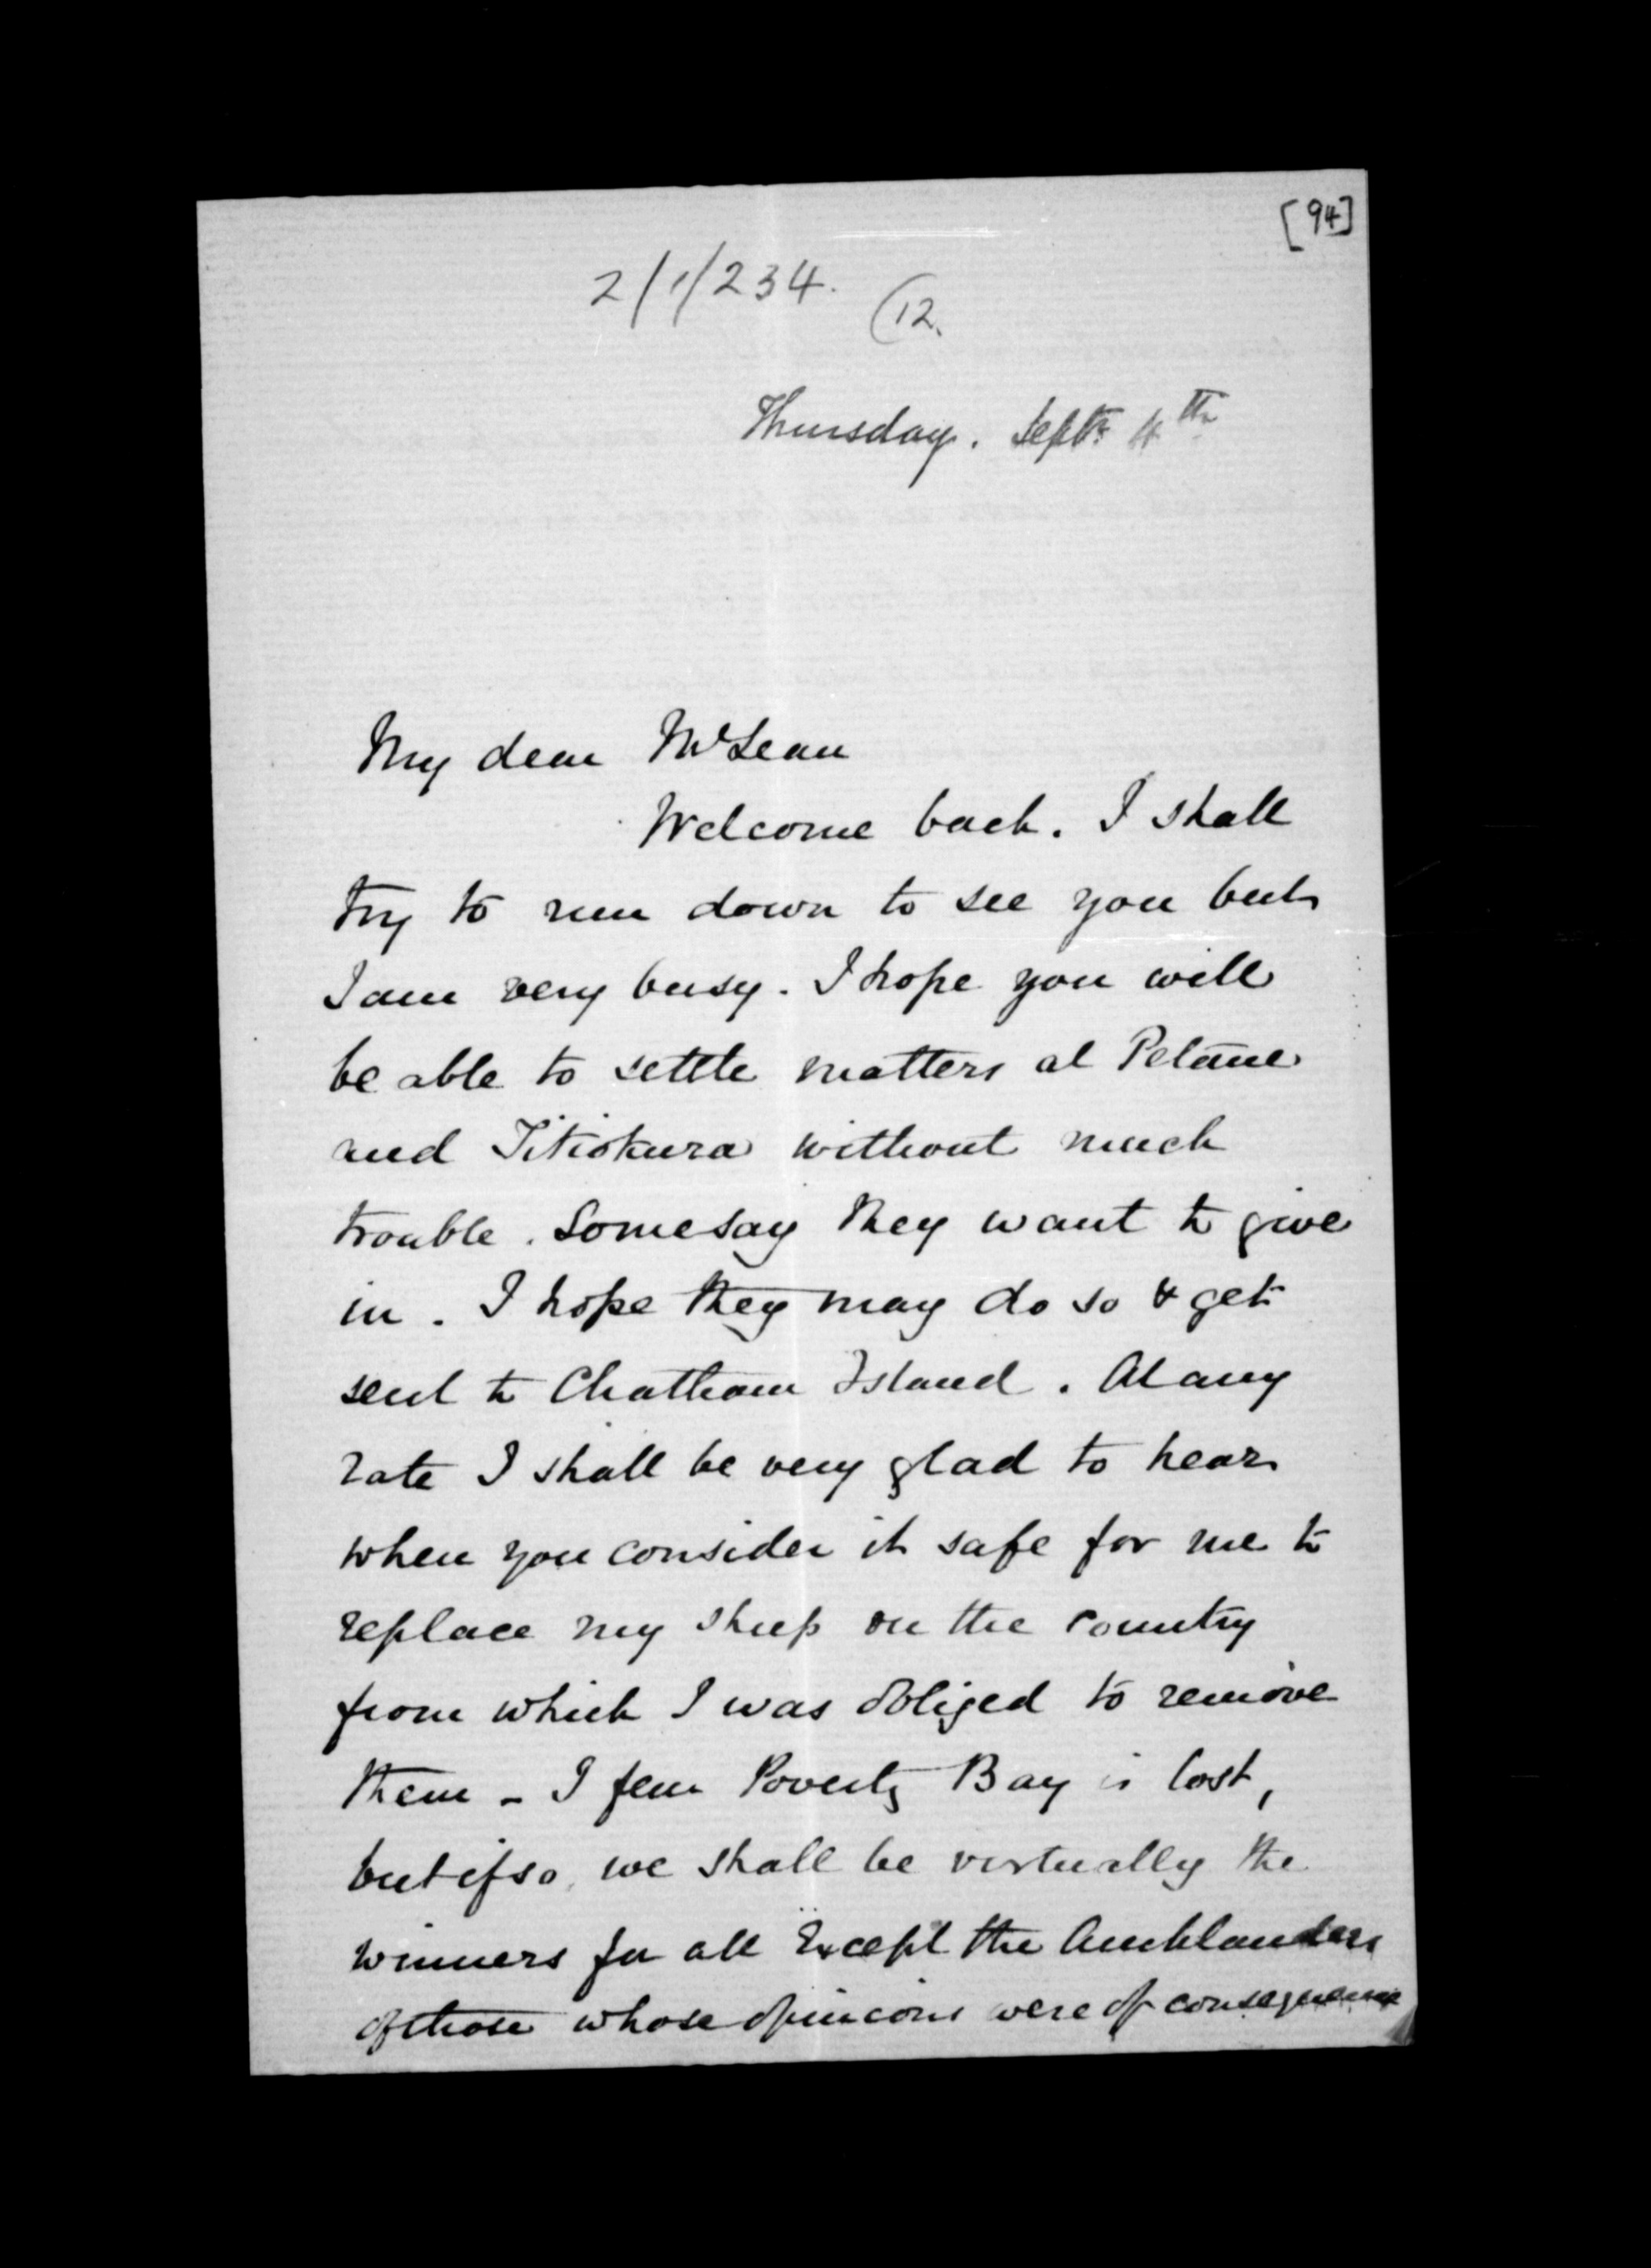 [94]
2/1/234.
(12.
Thursday. Septr 4th
My dear McLean
Welcome back. I shall
try to run down to see you but
I am very busy. I hope you will
be able to settle matters at Petane
and Titiokura without much
trouble. Some say they want to give
in. I hope they may do so & get
sent to Chatham Island. At any
rate I shall be very glad to hear
when you consider it safe for me to
replace my sheep on the country
from which I was obliged to remove
them - I fear Poverty Bay is lost,
but if so, we shall be virtually the
winners for all except the Aucklanders
of those whose opinions were of consequence